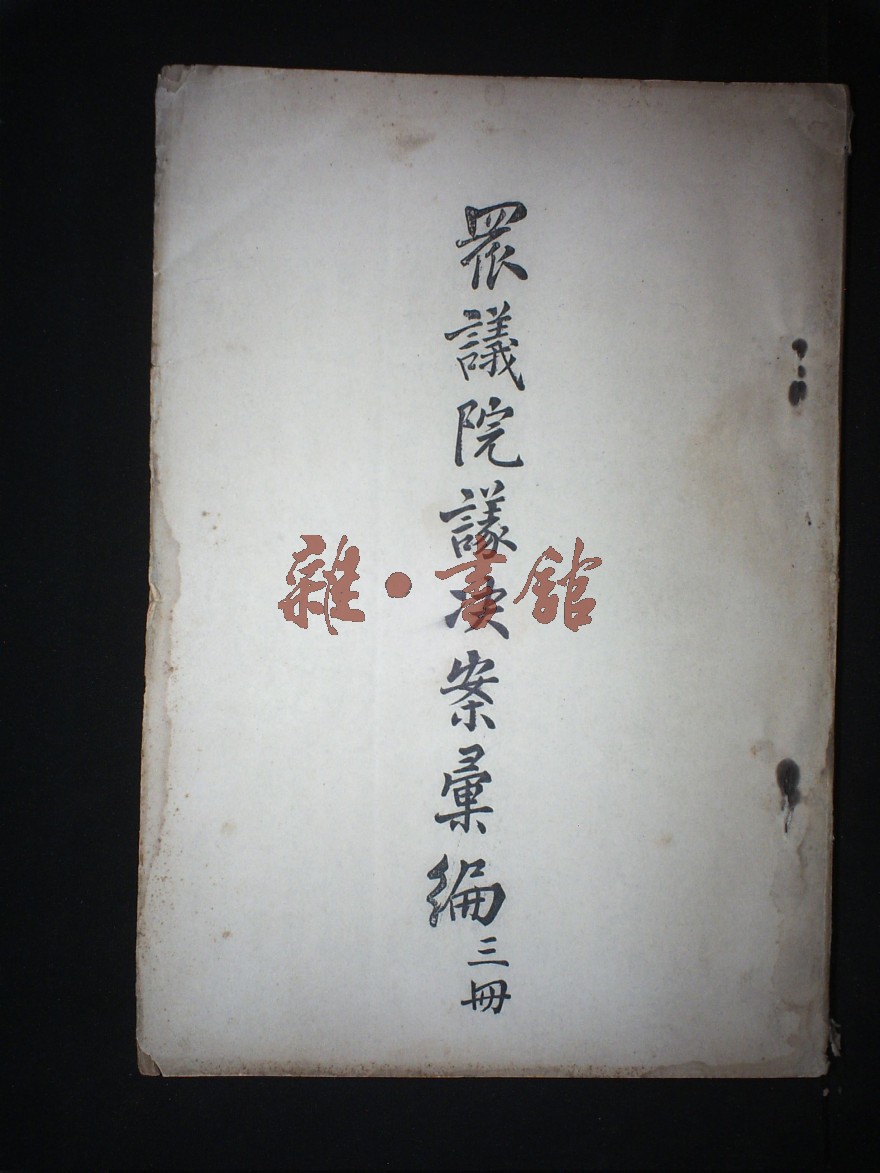 眾議院議决案彙編三冊
雜·書館